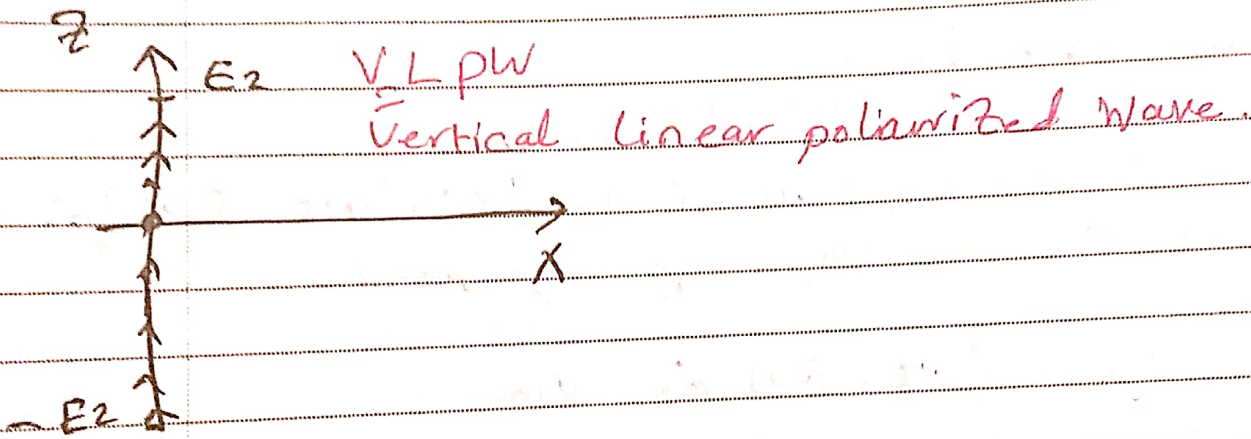 Z
E2
VLPW
Vertical linear poliawrized Wave.
X
- E2